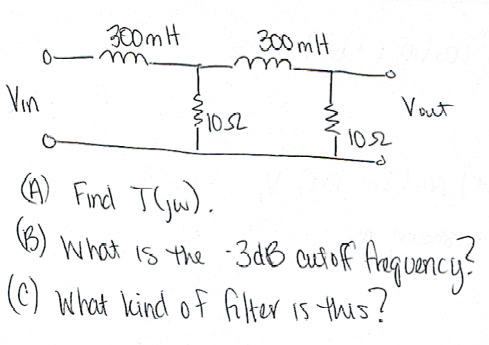 300mH 300mH
Vin Vout
10Ω 10Ω
(A) Find T(jω).
(B) What is the -3dB cutoff frequency?
(C) What kind of filter is this?